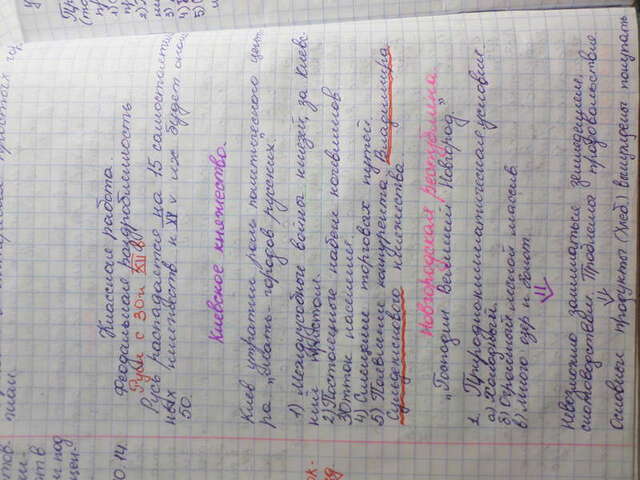 Классная работа.
Феодальная раздробленность
Руси с 30-х XII в.
Русь распадается на 15 самостоятель
ных княжеств к XV в. их будет около
50.
Киевское княжество.
Киев утратил роль политического цент
ра "мать городов русских".
1) Междоусобные война князей, за Киевс
кий престол.
2) Постоянные набеги кочевников
3) Отток населения.
4) Смещение торговых путей
5) Появление конкурента Владимиро
Суздальского княжества.
Новгородская республика
"Господин Великий Новгород"
1. Природноклиматические условия
а) Холодный.
б) Огромный лесной массив
в) Много озер и болот.
Невозможно заниматься земледелием,
скотоводством. Проблема продовольствие
Основном продукты (хлеб) вынуждены покупать
10.14.